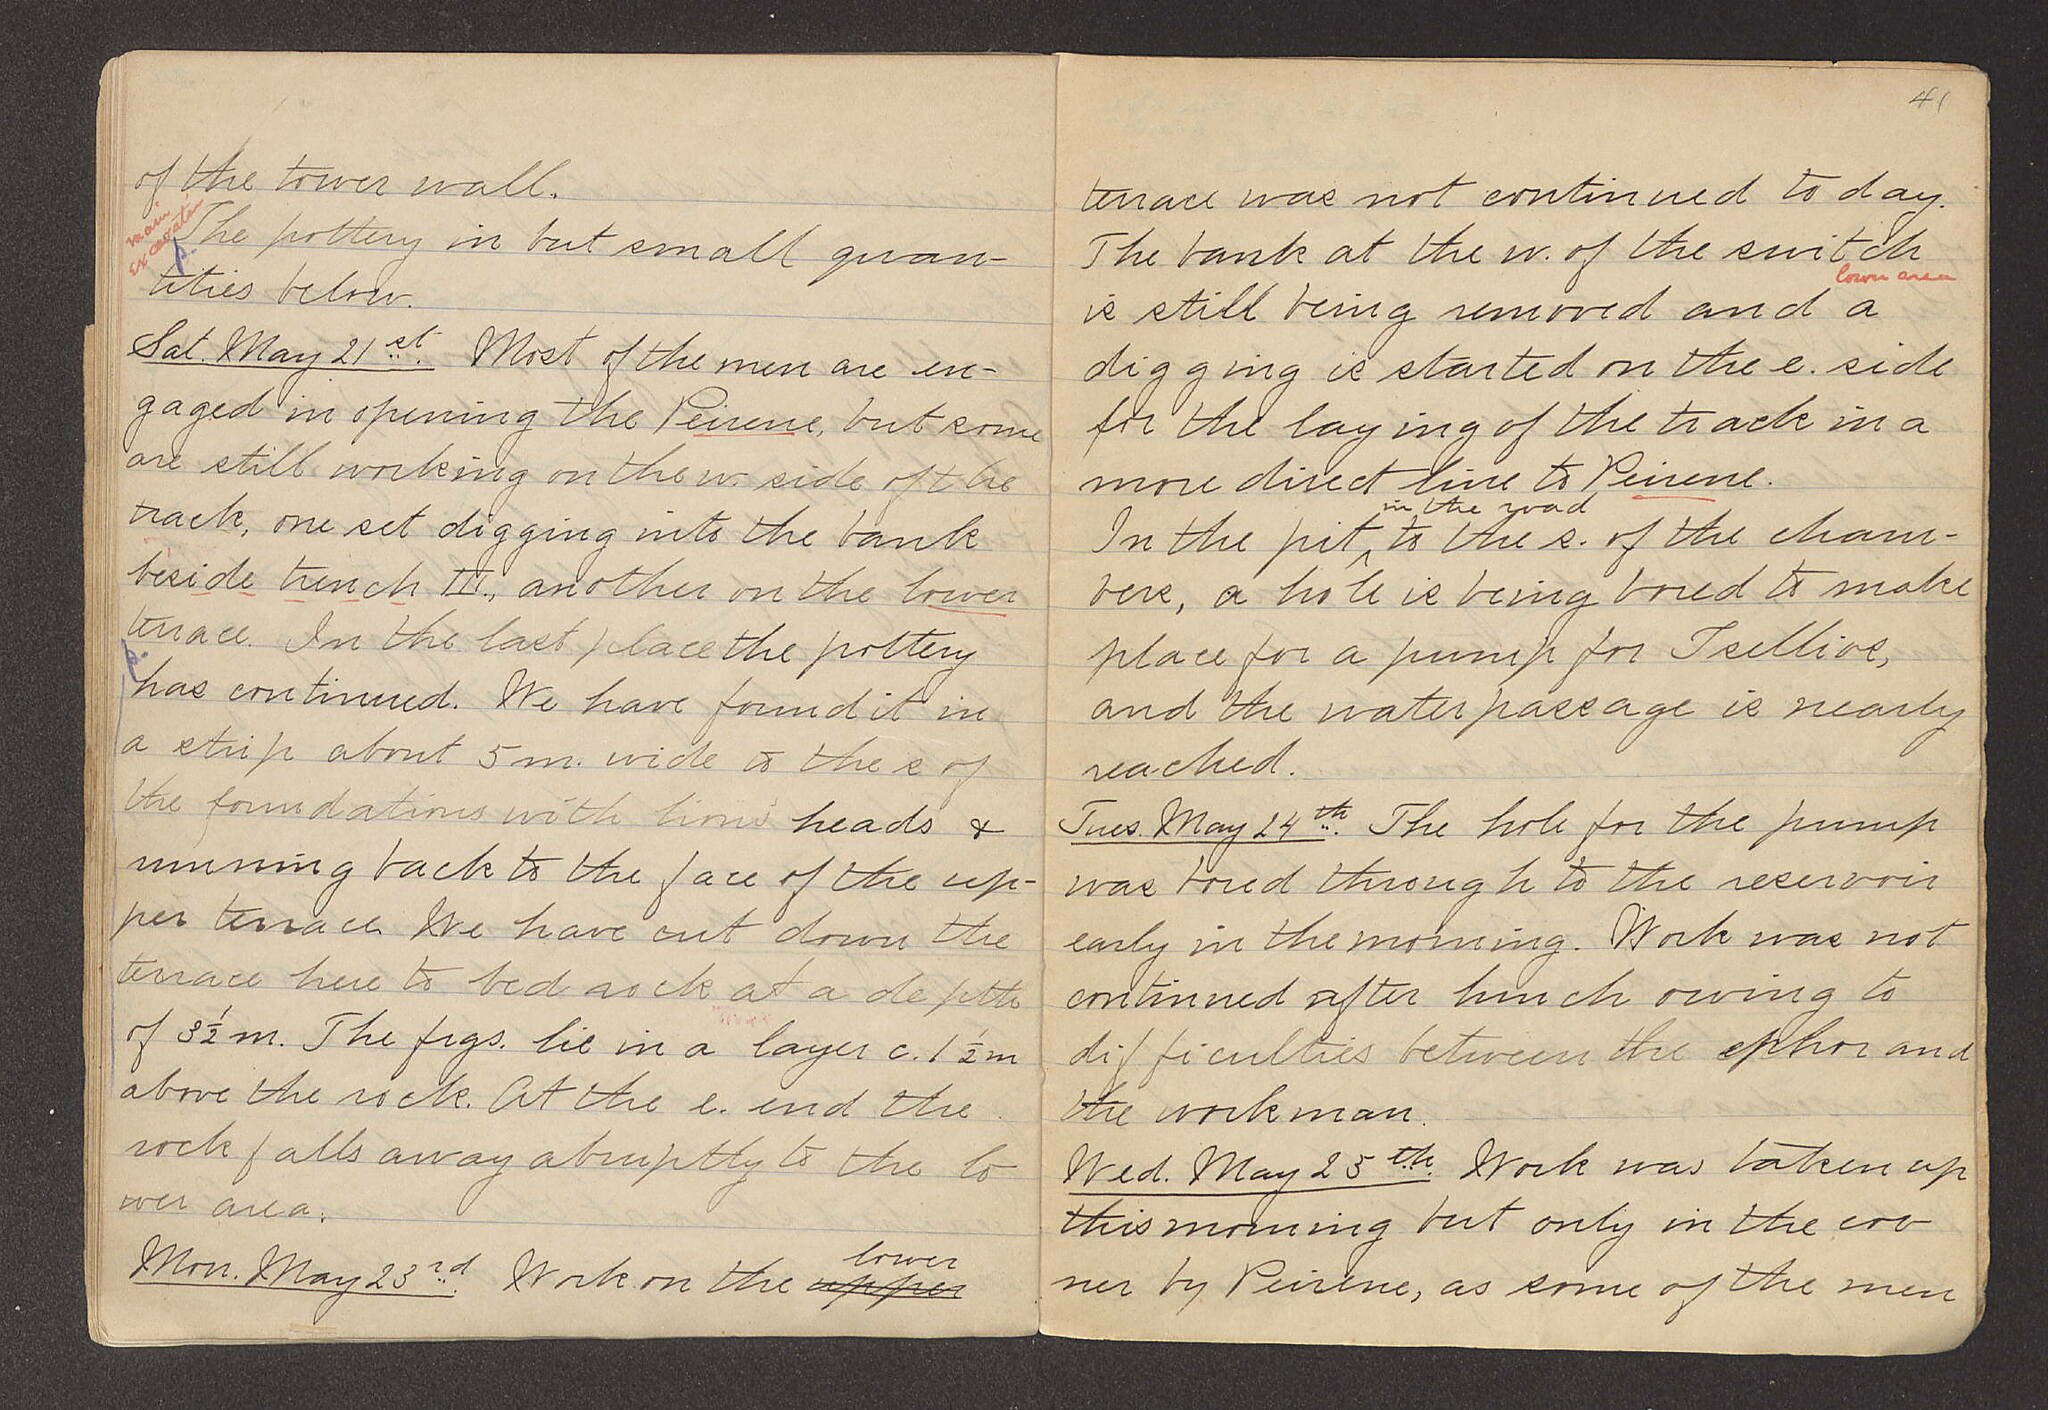 of the tower wall.
main
excavation
The pottery in but small quan-
p.
tities below.
Sat. May 21st. Most of the men are en-
gaged in opening the Peirene, but some
are still working on the w. side of the
track, one set digging into the bank
beside trench III., another on the lower
terrace. In the last place the pottery
p.
has continued. We have found it in
a strip about 5 m. wide to the s of
the foundations with lions heads &
running back to the face of the up-
per terrace. We have cut down the
terrace here to bed rock at a depth
of 3½ m. The frgs. lie in a layer c. 1½ m
above the rock. At the e. end the
rock falls away abruptly to the lo
wer area.
lower
Mon. May 23rd. Work on the upper
41
terrace was not continued to day.
The bank at the w. of the switch
lower area
is still being removed and a
digging is started on the e. side
for the laying of the track in a
more direct line to Peirene.
in the road
In the pit, to the s. of the cham-
bers, a hole is being bored to make
place for a pump for Tsellios,
and the water passage is nearly
reached.
Tues. May 24th. The hole for the pump
was bored through to the reservoir
early in the morning. Work was not
continued after lunch owing to
difficulties between the ephor and
the workman.
Wed. May 25th. Work was taken up
this morning but only in the cor
ner by Peirene, as some of the men